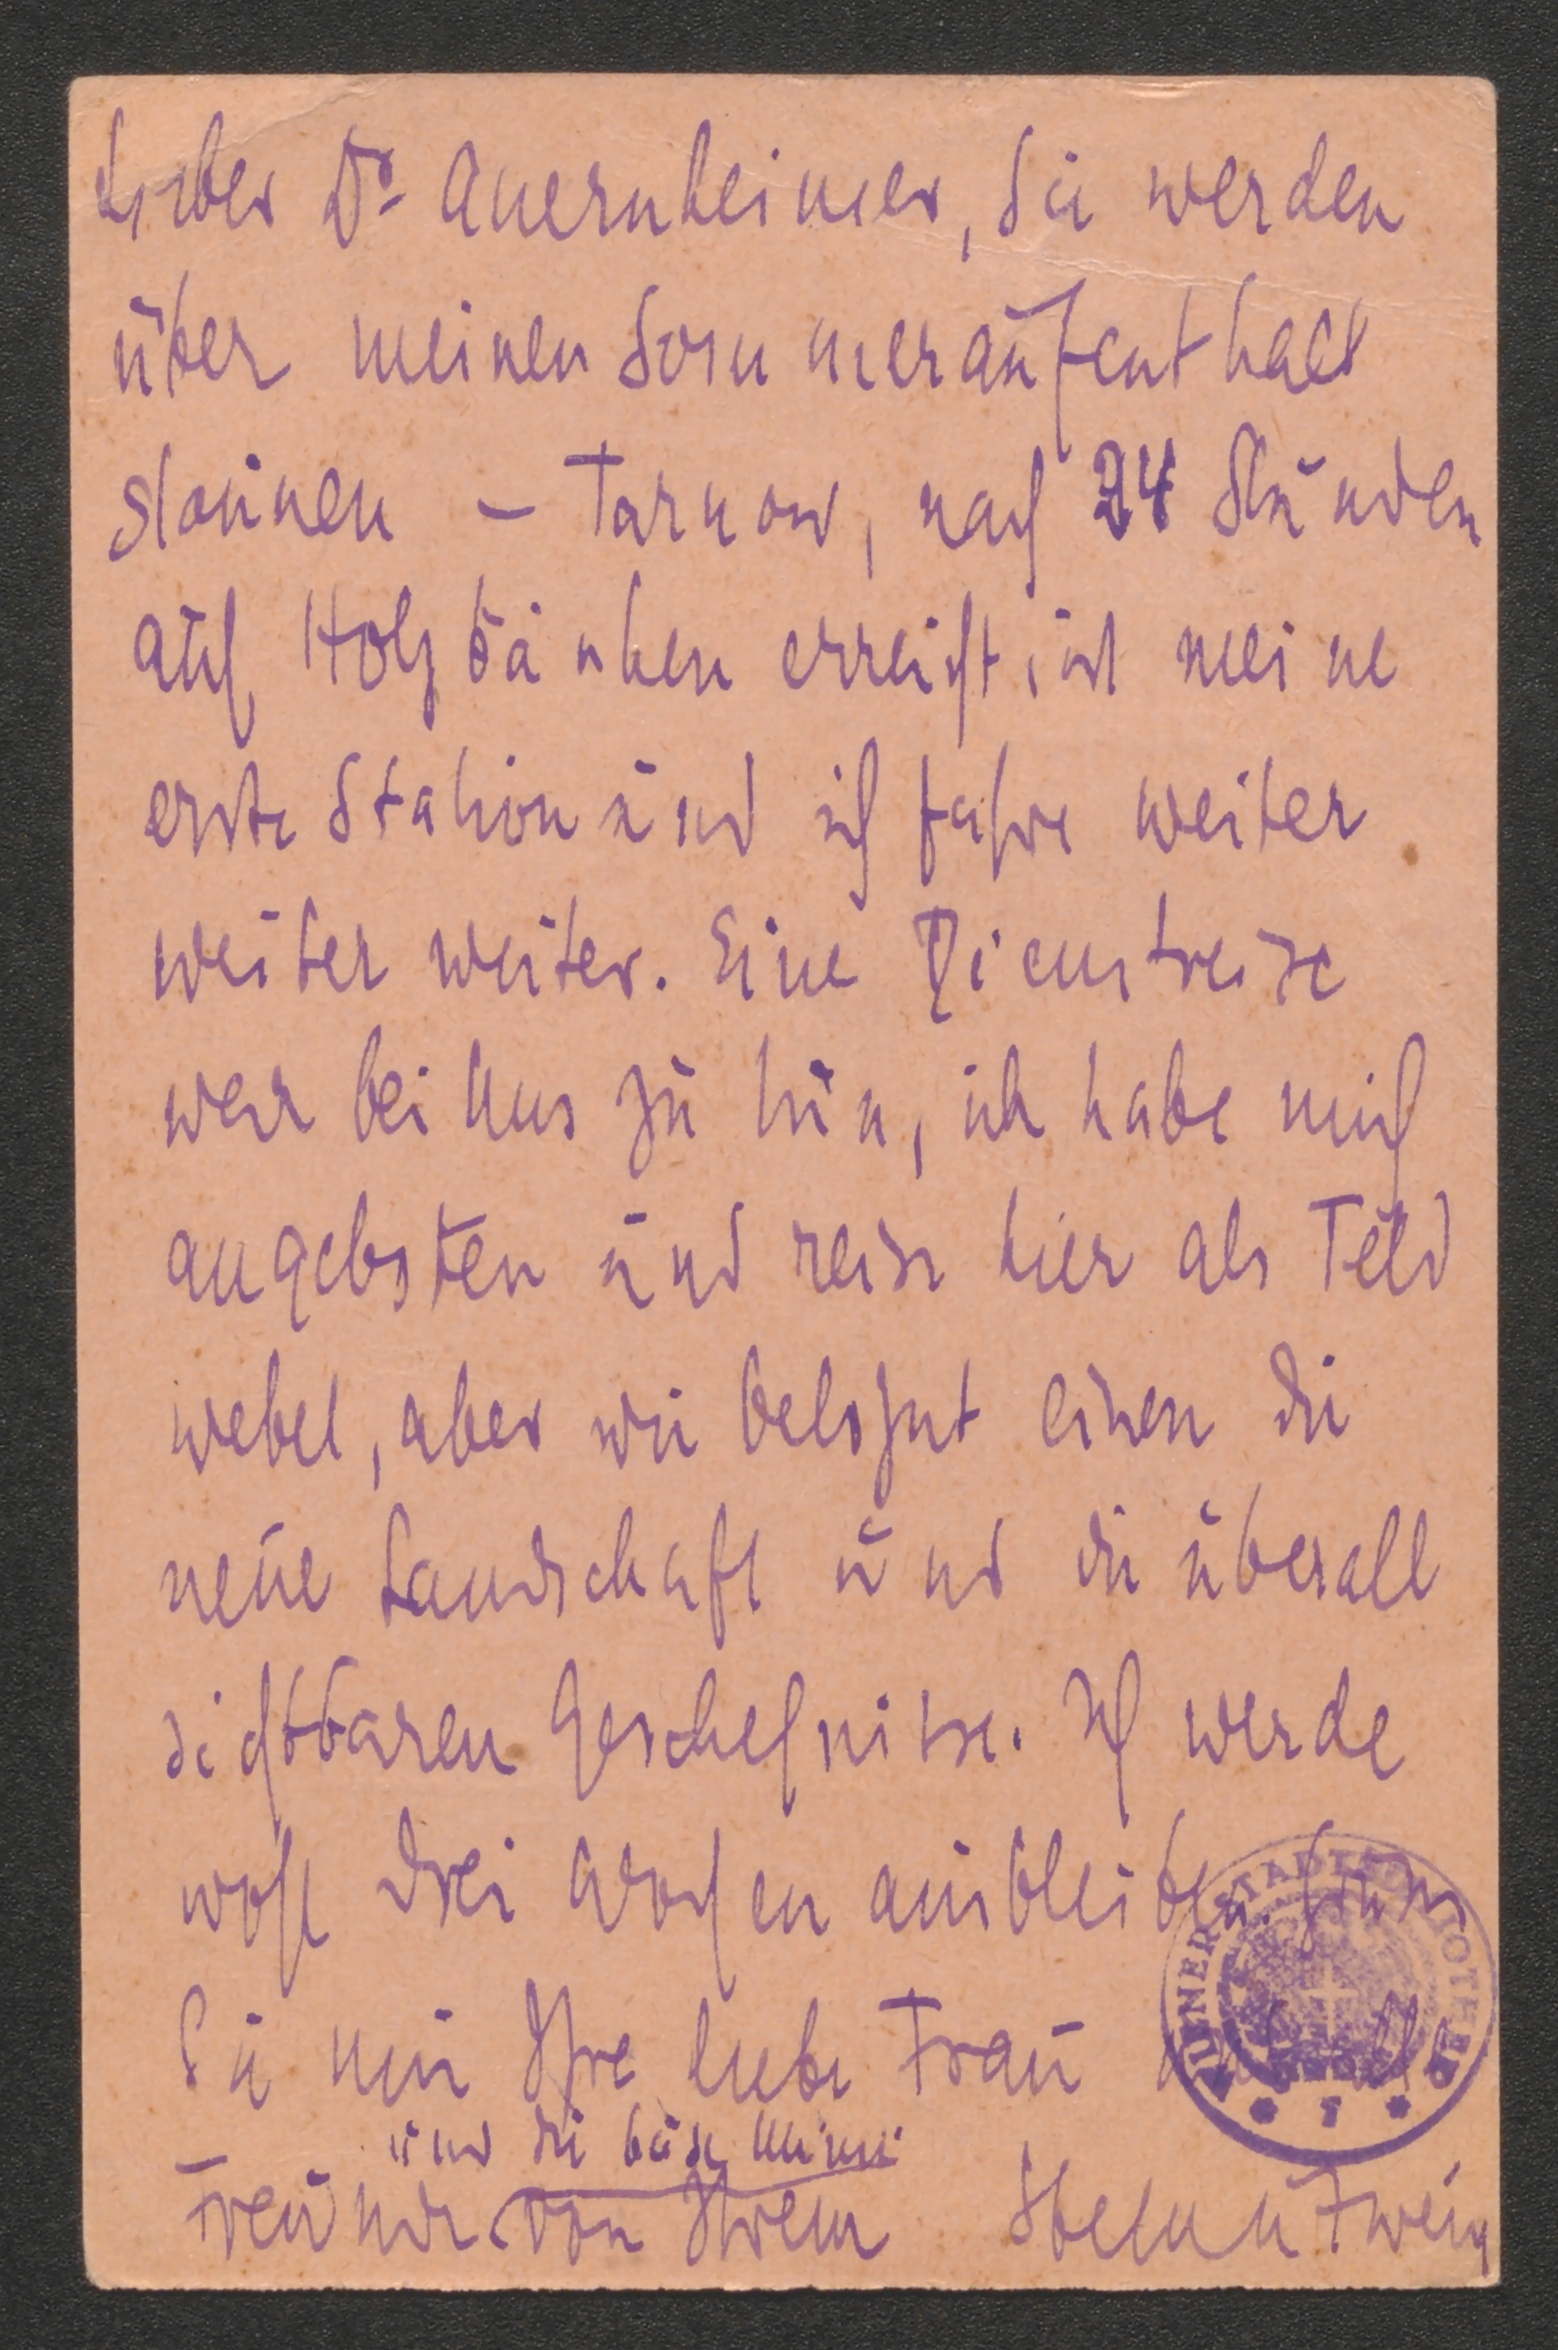 Lieber Dr Auernheimer, Sie werden
über meinen Sommeraufenthalt
staunen – Tarnow, nach 24 Stunden
auf Holzbänken erreicht, ist meine
erste Station und ich fahre weiter
weiter weiter. Eine Dienstreise
war bei uns zu tun, ich habe mich
angeboten und reise hier als Feld
webel, aber wie belohnt einen die
neue Landschaft und die überall
sichtbaren Geschehnisse. Ich werde
wohl drei Wochen ausbleiben. Grüssen
Sie mir Ihre liebe Frau und alle
und die böse Mimi
Freunde von Ihrem Stefan Zweig
WIENER STADTBIBLIOTHEK